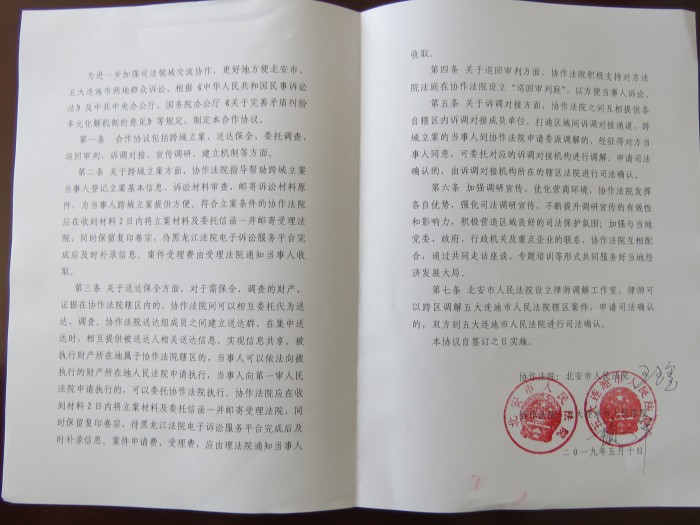 为进一步加强司法领域交流协作，更好地方便北安市、
五大连池市两地群众诉讼，根据《中华人民共和国民事诉讼
法》及中共中央办公厅、国务院办公厅《关于完善矛盾纠纷
多元化解机制的意见》等规定，制定本合作协议。
第一条 合作协议包括跨域立案、送达保全、委托调查、
巡回审判、诉调对接、宣传调研、建立机制等方面。
第二条 关于跨域立案方面，协作法院指导帮助跨域立案
当事人登记立案基本信息、诉讼材料审查、邮寄诉讼材料原
件，为当事人跨域立案提供方便。符合立案条件的协作法院
应在收到材料2日内将立案材料及委托信函一并邮寄受理法
院，同时保留复印卷宗，待黑龙江法院电子诉讼服务平台完
成后及时补录信息。案件受理费由受理法院通知当事人
收取。
第三条 关于送达保全方面，对于需保全、调查的财产、
证据在协作法院辖区内的，协作法院间可以相互委托代为送
达、调查。协作法院送达组成员之间建立送达群，在集中送
达时，相互提供被送达人相关送达信息，实现信息共享。被
执行财产所在地属于协作法院辖区的，当事人可以依法向被
执行的财产所在地人民法院申请执行，当事人向第一审人民
法院申请执行的，可以委托协作法院执行。协作法院应在收
到材料2日内将立案材料及委托信函一并邮寄受理法院，同
时保留复印卷宗，待黑龙江法院电子诉讼服务平台完成后及
时补录信息。案件申请费、受理费，应由理法院通知当事人
收取。
第四条 关于巡回审判方面，协作法院积极支持对方法
院法庭在协作法院设立“巡回审判庭”，以方便当事人诉讼。
第五条 关于诉调对接方面，协作法院之间互相提供各
自辖区内诉调对接成员单位，打通区域间诉调对接通道。跨
域立案的当事人到协作法院申请委派调解的，经征得对方当
事人同意，可委托对应的诉调对接机构进行调解。申请司法
确认的，由诉调对接机构所在的辖区法院进行司法确认。
第六条 加强调研宣传，优化营商环境，协作法院发挥
各自优势，强化司法调研宣传，不断提升调研宣传的有效性
和影响力，积极营造区域良好的司法保护氛围；加强与当地
党委、政府、行政机关及重点企业的联系，协作法院互相配
合，通过共同走访座谈、专题培训等形式共同服务好当地经
济发展大局。
第七条 北安市人民法院设立律师调解工作室，律师可
以跨区调解五大连池市人民法院辖区案件，申请司法确认
的，双方到五大连池市人民法院进行司法确认。
本协议自签订之日实施。
协作法院：北安市人民法院
协作法院：五大连池市人民法院
北安市人民法院
五大连池市人民法院
二〇一九年五月十日